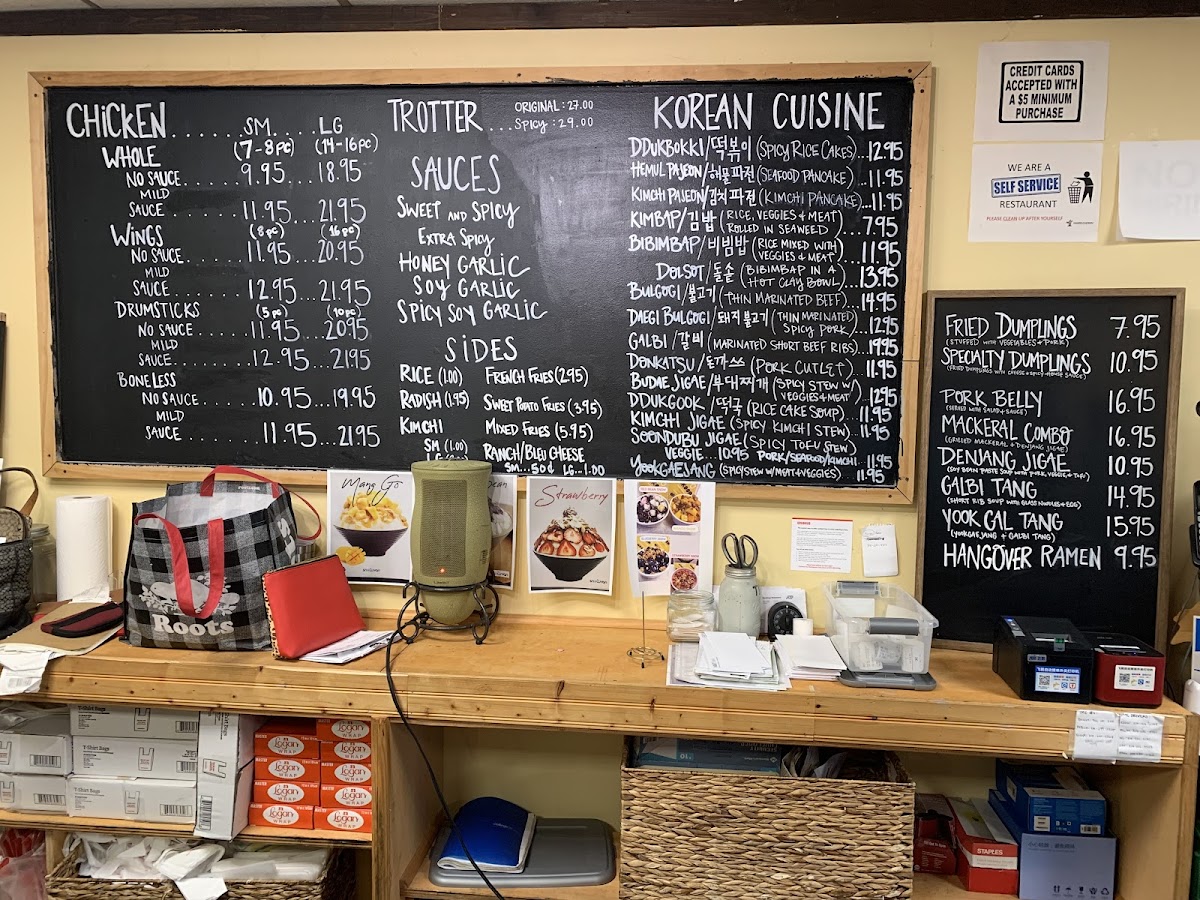 CHICKEN.......SM.....LG
(7-8 PC) (14-16 PC)
WHOLE
NO SAUCE.......9.95...18.95
MILD
SAUCE........11.95...21.95
WINGS (8 PC) (16 PC)
NO SAUCE.......11.95...20.95
MILD
SAUCE........12.95...21.95
DRUMSTICKS (5 PC) (10 PC)
NO SAUCE......11.95...20.95
MILD
SAUCE........12.95...21.95
BONELESS
NO SAUCE.......10.95...19.95
MILD
SAUCE........11.95...21.95
TROTTER... ORIGINAL: 27.00
SPICY: 29.00
SAUCES
SWEET AND SPICY
EXTRA SPICY
HONEY GARLIC
SOY GARLIC
SPICY SOY GARLIC
SIDES
RICE (1.00)
RADISH (1.95)
KIMCHI
SM (1.00)
FRENCH FRIES (2.95)
SWEET POTATO FRIES (3.95)
MIXED FRIES (5.95)
RANCH/BLEU CHEESE
SM...50¢ LG..1.00
KOREAN CUISINE
DDUKBOKKI/떡볶이 (SPICY RICE CAKES)...12.95
HEMUL PAJEON/해물파전 (SEAFOOD PANCAKE)...11.95
KIMCHI PAJEON/김치파전 (KIMCHI PANCAKE)...11.95
KIMBAP/김밥 (RICE, VEGGIES & MEAT ROLLED IN SEAWEED)...7.95
BIBIMBAP/비빔밥 (RICE MIXED WITH VEGGIES & MEAT)...11.95
DOLSOT/돌솥 (BIBIMBAP IN A HOT CLAY BOWL)...13.95
BULGOGI/불고기 (THIN MARINATED BEEF)...14.95
DAEGI BULGOGI/돼지불고기 (THIN MARINATED SPICY PORK)...12.95
GALBI/갈비 (MARINATED SHORT BEEF RIBS)...19.95
DONKATSU/돈까쓰 (PORK CUTLET)...11.95
BUDAE JIGAE/부대찌개 (SPICY STEW W/ VEGGIES & MEAT)...12.95
DDUKGOOK/떡국 (RICE CAKE SOUP)...11.95
KIMCHI JIGAE (SPICY KIMCHI STEW)...11.95
SOONDUBU JIGAE (SPICY TOFU STEW)
VEGGIE...10.95 PORK/SEAFOOD/KIMCHI...11.95
YOOKGAEJANG (SPICY STEW W/ MEAT & VEGGIES)...11.95
CREDIT CARDS
ACCEPTED WITH
A $5 MINIMUM
PURCHASE
WE ARE A
SELF SERVICE
RESTAURANT
PLEASE CLEAN UP AFTER YOURSELF
FRIED DUMPLINGS 7.95
(STUFFED WITH VEGETABLES & PORK)
SPECIALTY DUMPLINGS 10.95
(FRIED DUMPLINGS WITH CHEESE & SPICY HOUSE SAUCE)
PORK BELLY 16.95
(SERVED WITH SALAD & SAUCE)
MACKERAL COMBO 16.95
(GRILLED MACKERAL & DENJANG JIGAE)
DENJANG JIGAE 10.95
(SOY BEAN PASTE SOUP WITH PORK, VEGGIE & TOFU)
GALBI TANG 14.95
(SHORT RIB SOUP WITH GLASS NOODLES & EGG)
YOOK GAL TANG 15.95
(YOOKGAEJANG & GALBI TANG)
HANGOVER RAMEN 9.95
Mango
Strawberry
Roots
T-Shirt Bags
T-Shirt Bags
Logan
WRAP
STAPLES